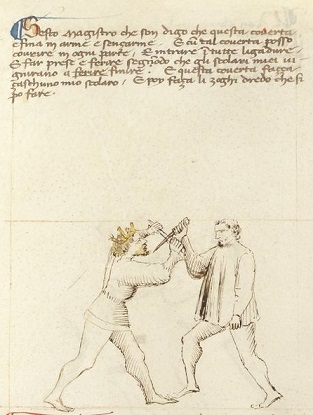 Sesto Magistro che son digo che questa coverta
e fina in arme e sença arme. E cum tal coverta posso
covrire in ogni parte. E intrare in tutte ligadure.
E far prese e ferire segondo che gli scolari miei
ferire finire. E questa coverta faça
çaschuno mio scolaro. E poy faça li zoghi dredo che si
po fare.